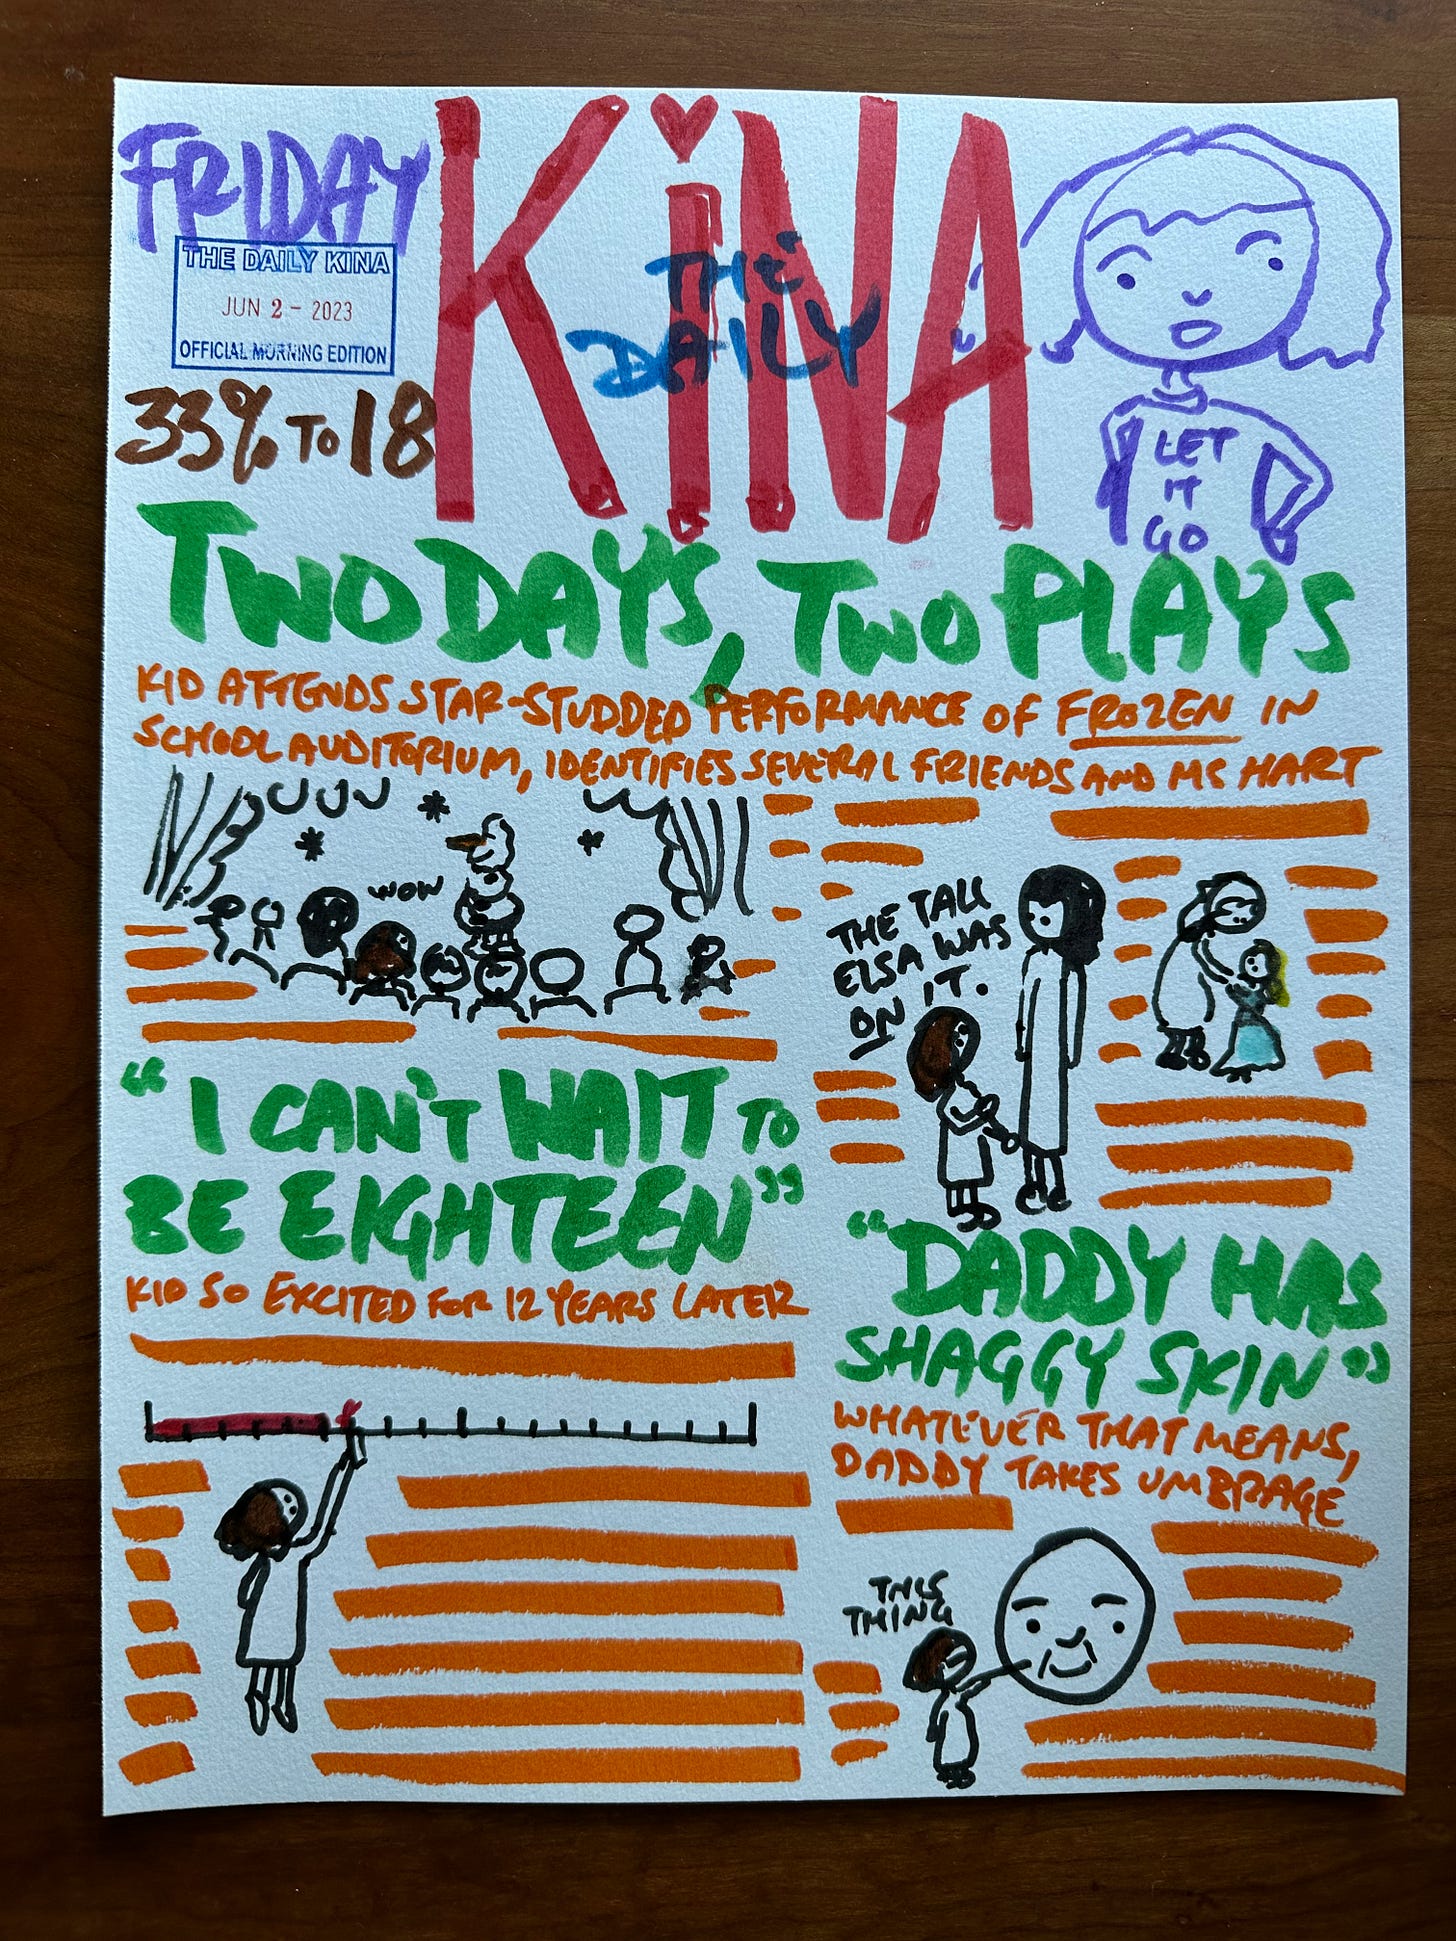 FRIDAY
THE DAILY KINA
JUN 2 - 2023
OFFICIAL MORNING EDITION
33% TO 18
KiNA
THE
DAILY
LET
IT
GO
TWO DAYS, TWO PLAYS
KID ATTENDS STAR-STUDDED PERFORMANCE OF FROZEN IN
SCHOOL AUDITORIUM, IDENTIFIES SEVERAL FRIENDS AND MS HART
WOW
THE TALL
ELSA WAS
ON IT.
"I CAN'T WAIT TO
BE EIGHTEEN"
KID SO EXCITED FOR 12 YEARS LATER
"DADDY HAS
SHAGGY SKIN"
WHATEVER THAT MEANS,
DADDY TAKES UMBRAGE
THIS
THING